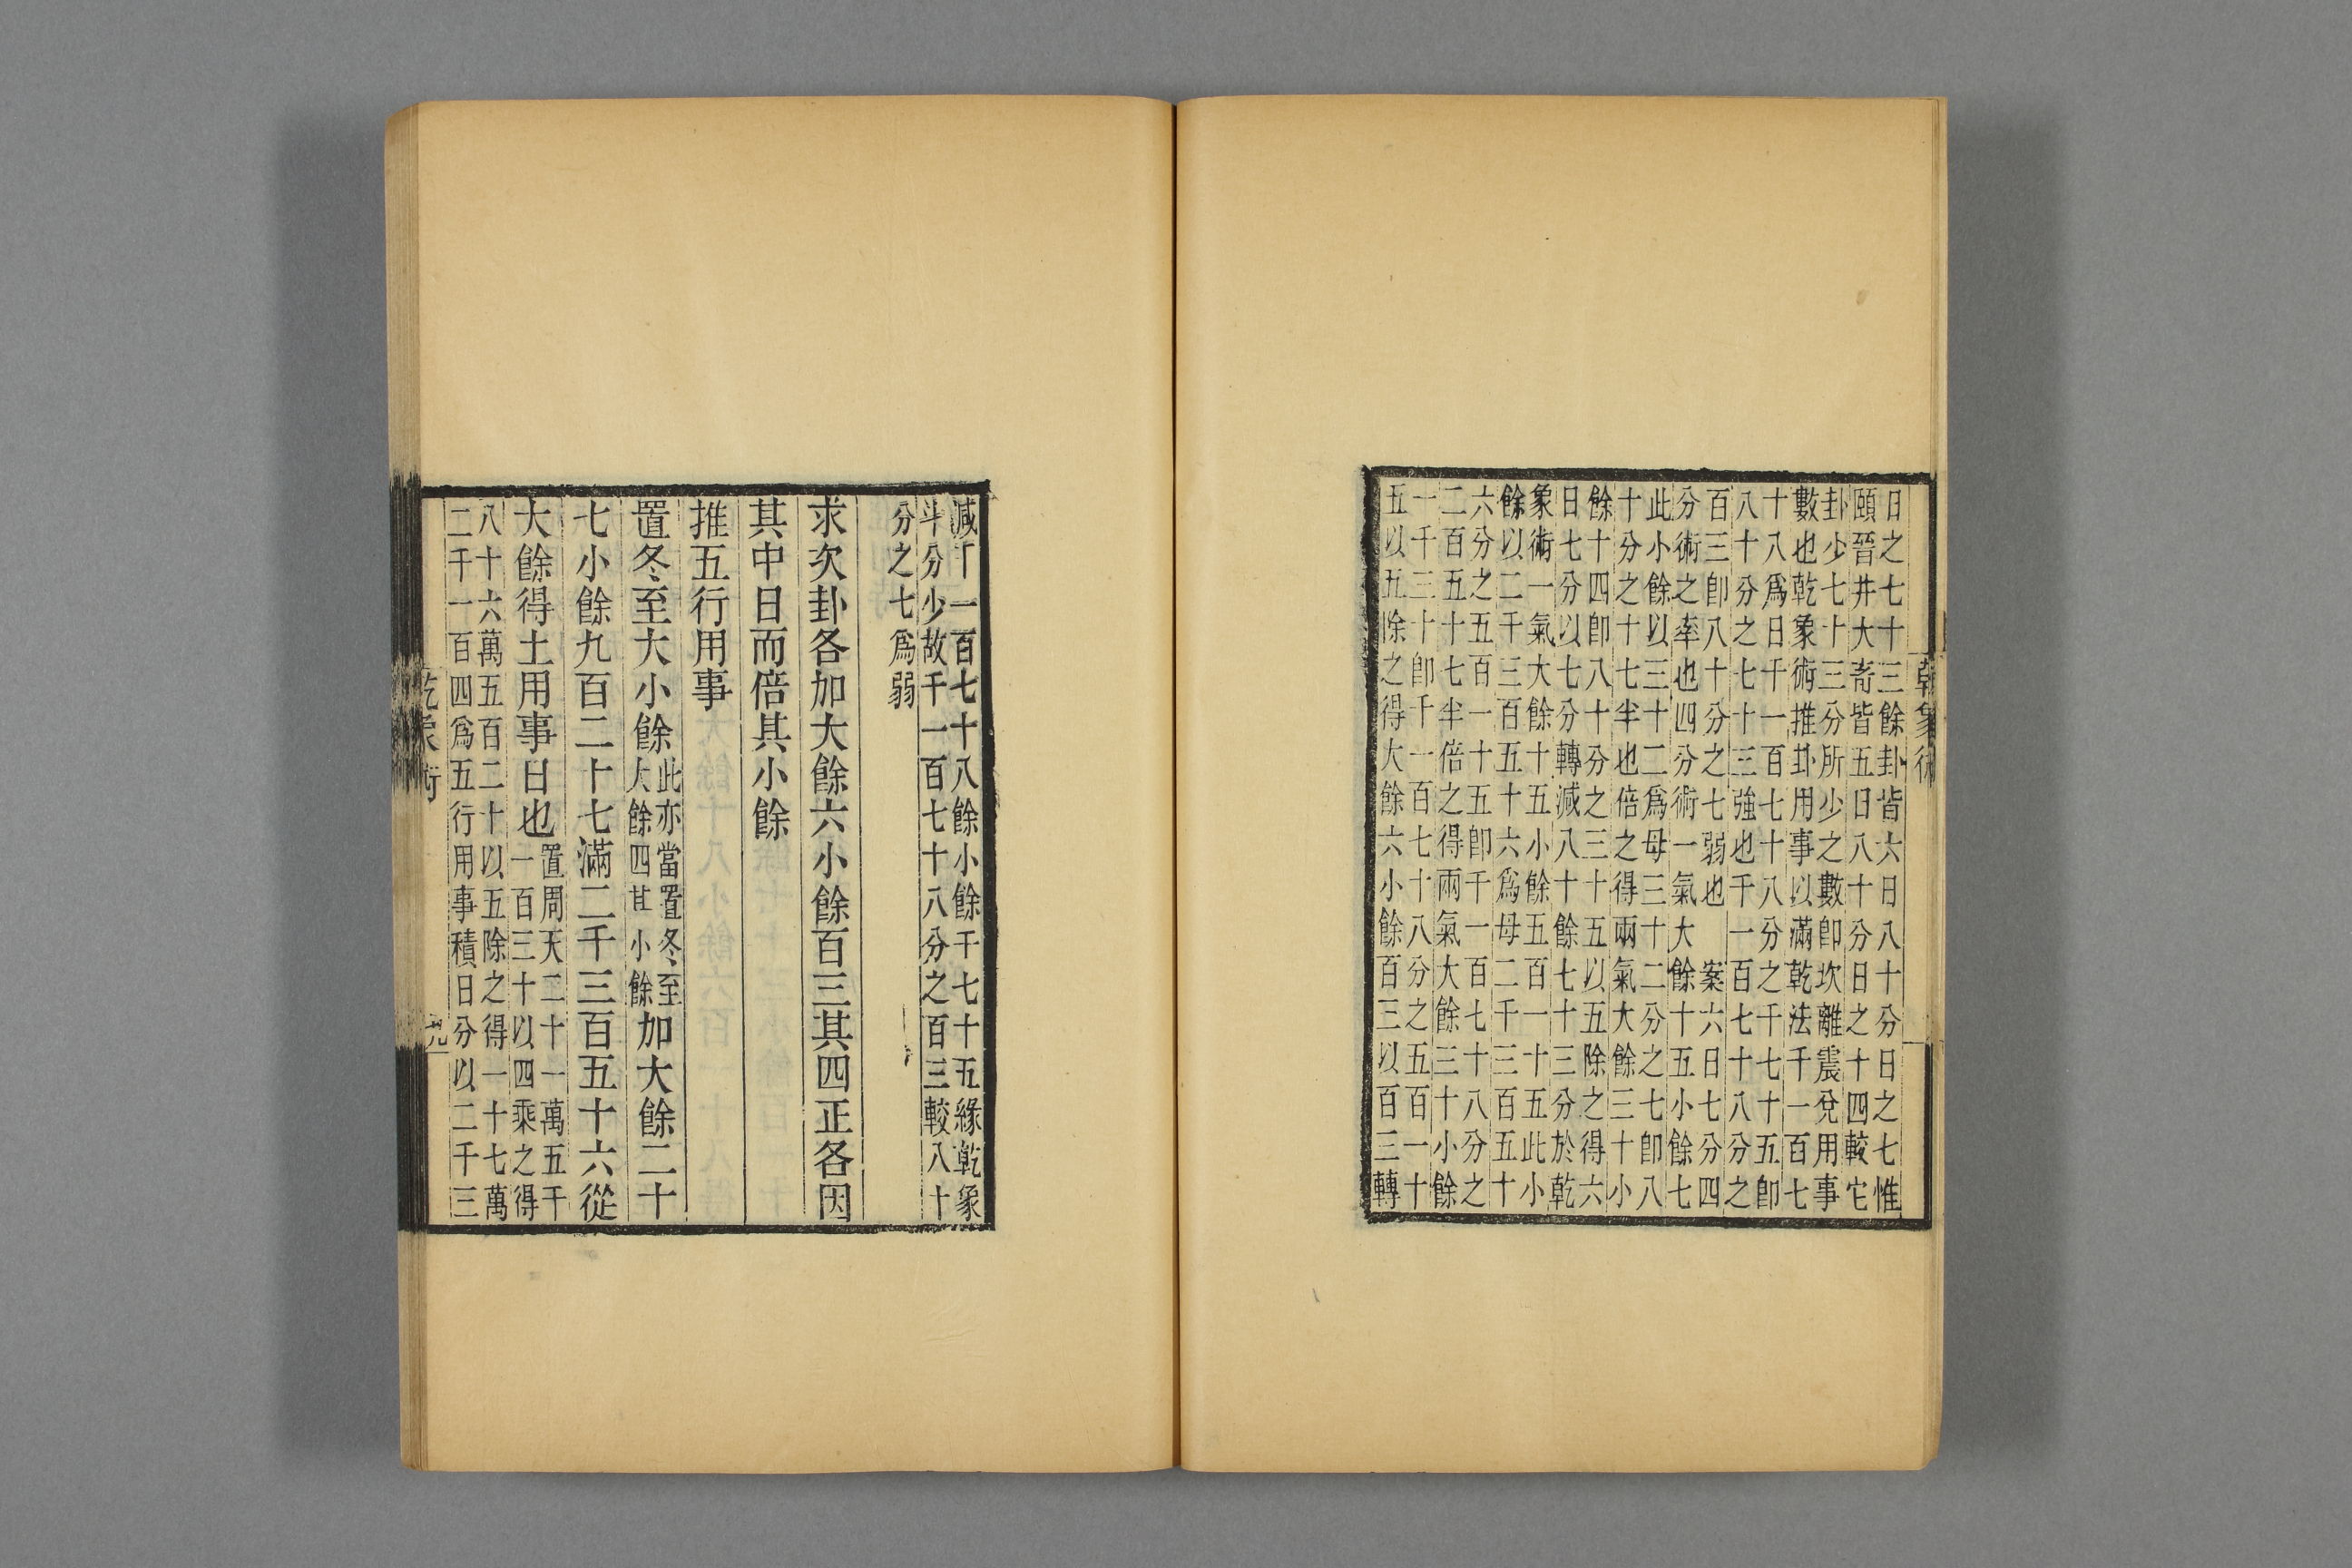 日之七十三餘卦皆六日八十分日之七惟
頤晉井大奇皆五日八十分日之十四較它
卦少七十三分所少之數卽坎離震兌用事
數也乾象術推卦用事以滿乾法千一百七
十八爲日千一百七十八分之千七十五卽
八十分之七十三強也千一百七十八分之
百三卽八十分之七弱也 案六日七分四
分術之率也四分術一氣大餘十五小餘七
此小餘以三十二爲母三十二分之七卽八
十分之十七半也倍之得兩氣大餘三十小
餘十四卽八十分之三十五以五除之得六
日七分以七分轉減八十餘七十三分於乾
象術一氣大餘十五小餘五百一十五此小
餘以二千三百五十六爲母二千三百五十
六分之五百一十五卽千一百七十八分之
二百五十七半倍之得兩氣大餘三十小餘
一千三十卽千一百七十八分之五百一十
五以五除之得大餘六小餘百三以百三轉
減丁一百七十八餘小餘千七十五緣乾象
斗分少故千一百七十八分之百三較八十
分之七爲弱
求次卦各加大餘六小餘百三其四正各因
其中日而倍其小餘
推五行用事
置冬至大小餘此亦當置冬至大餘四其小餘加大餘二十
七小餘九百二十七滿二千三百五十六從
大餘得土用事日也置周天二十一萬五千一百三十以四乘之得
八十六萬五百二十以五除之得一十七萬
二千一百四爲五行用事積日分以二千三
乾象術
九